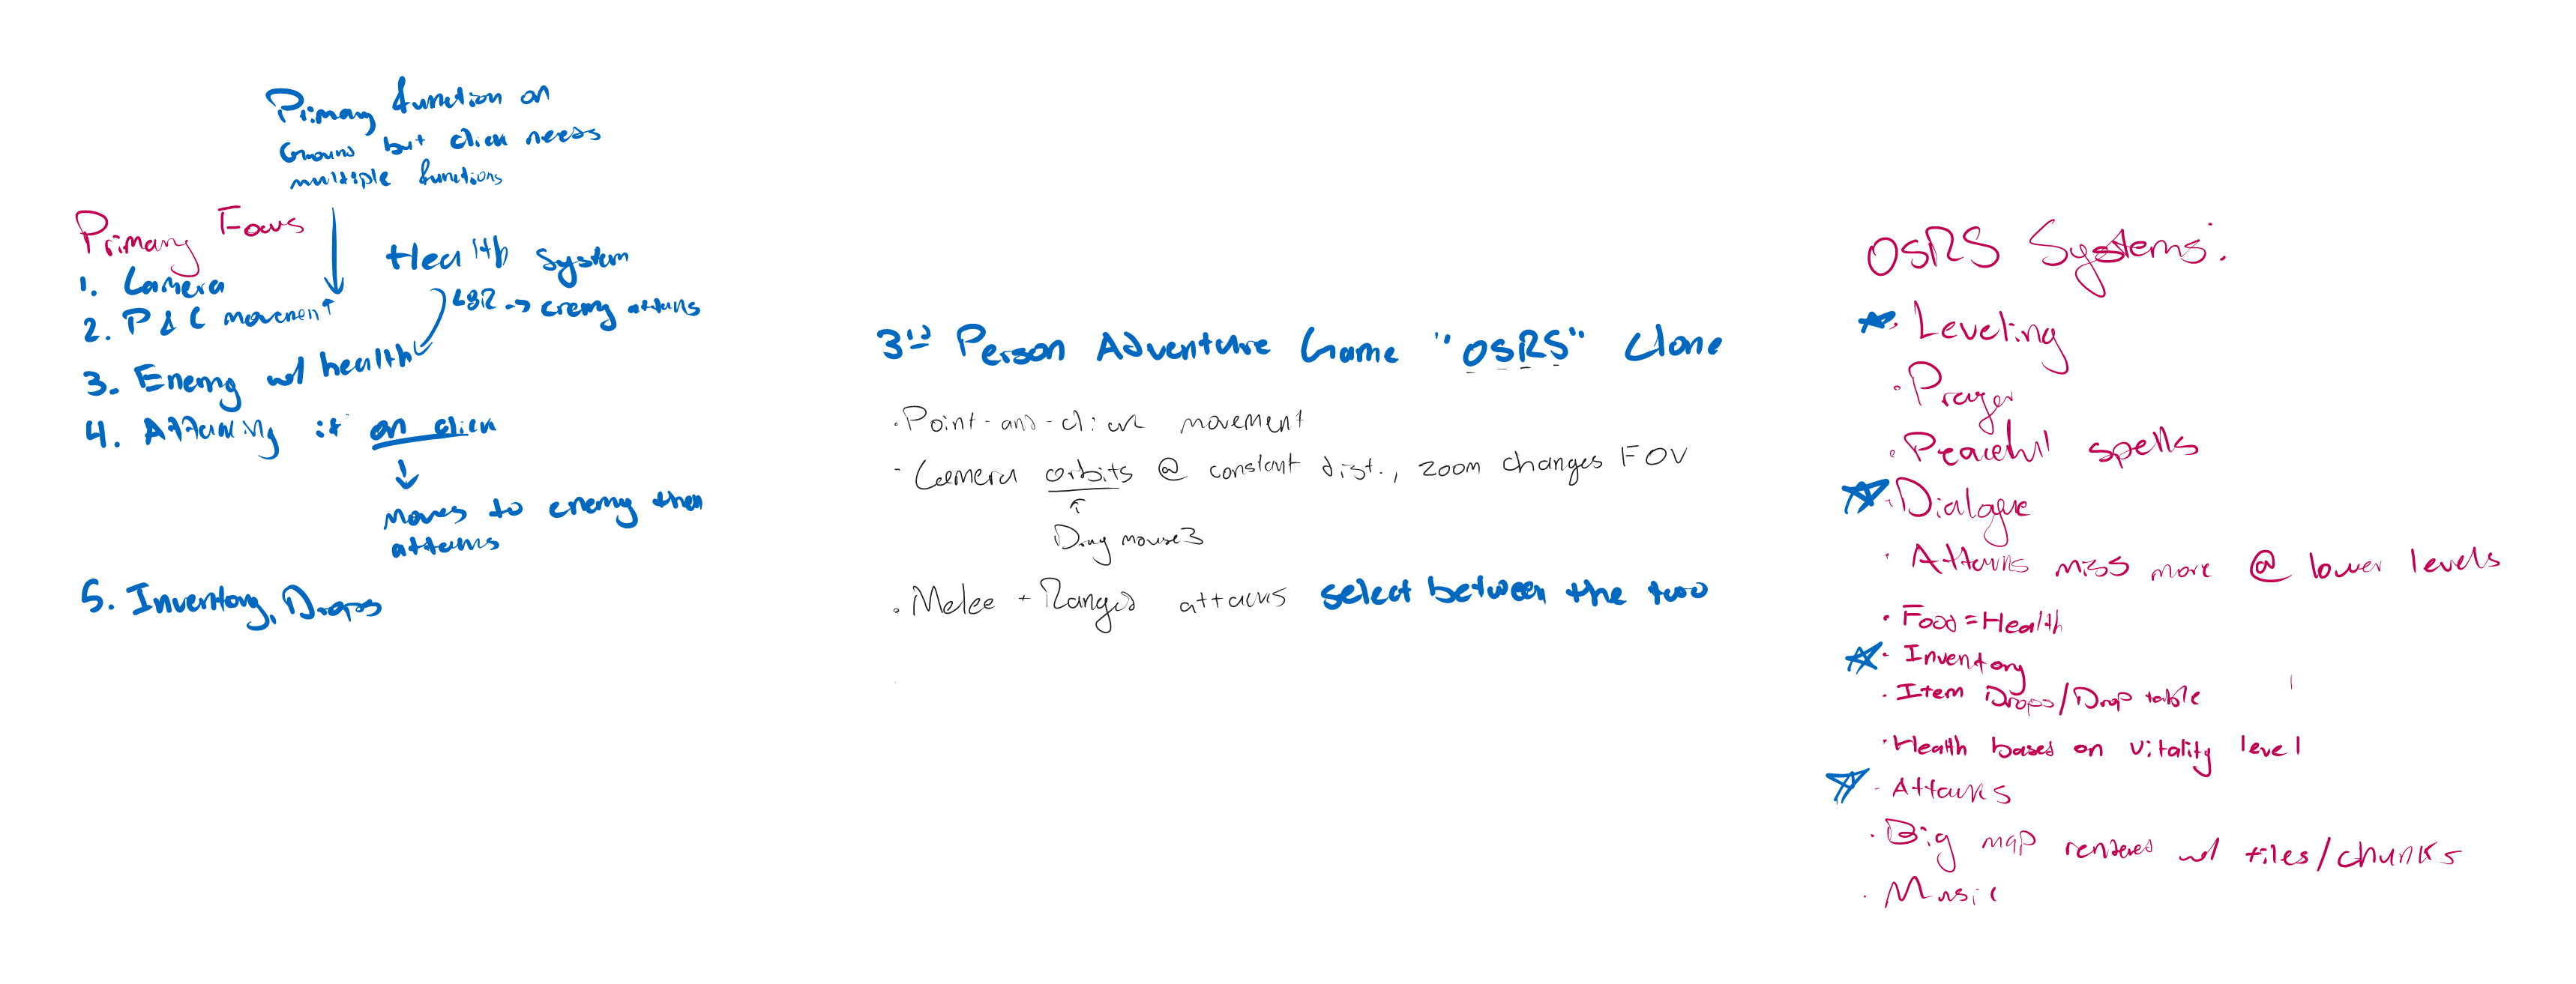 Primary function on
Ground but click needs
multiple functions
Primary Focus
1. Camera
2. P & C movement
Health System
→ enemy attacks
3. Enemy w/ health
4. Attacking it on click
moves to enemy then
attacks
5. Inventory, Drops
3rd Person Adventure Game "OSRS" Clone
· Point-and-click movement
- Camera orbits @ constant dist., zoom changes FOV
Drag mouse3
· Melee + Ranged attacks select between the two
OSRS Systems:
· Leveling
· Prayer
· Peaceful spells
· Dialogue
· Attacks miss more @ lower levels
· Food = Health
· Inventory
· Item Drops/Drop table
· Health based on vitality level
· Attacks
· Big map rendered w/ tiles/chunks
· Music